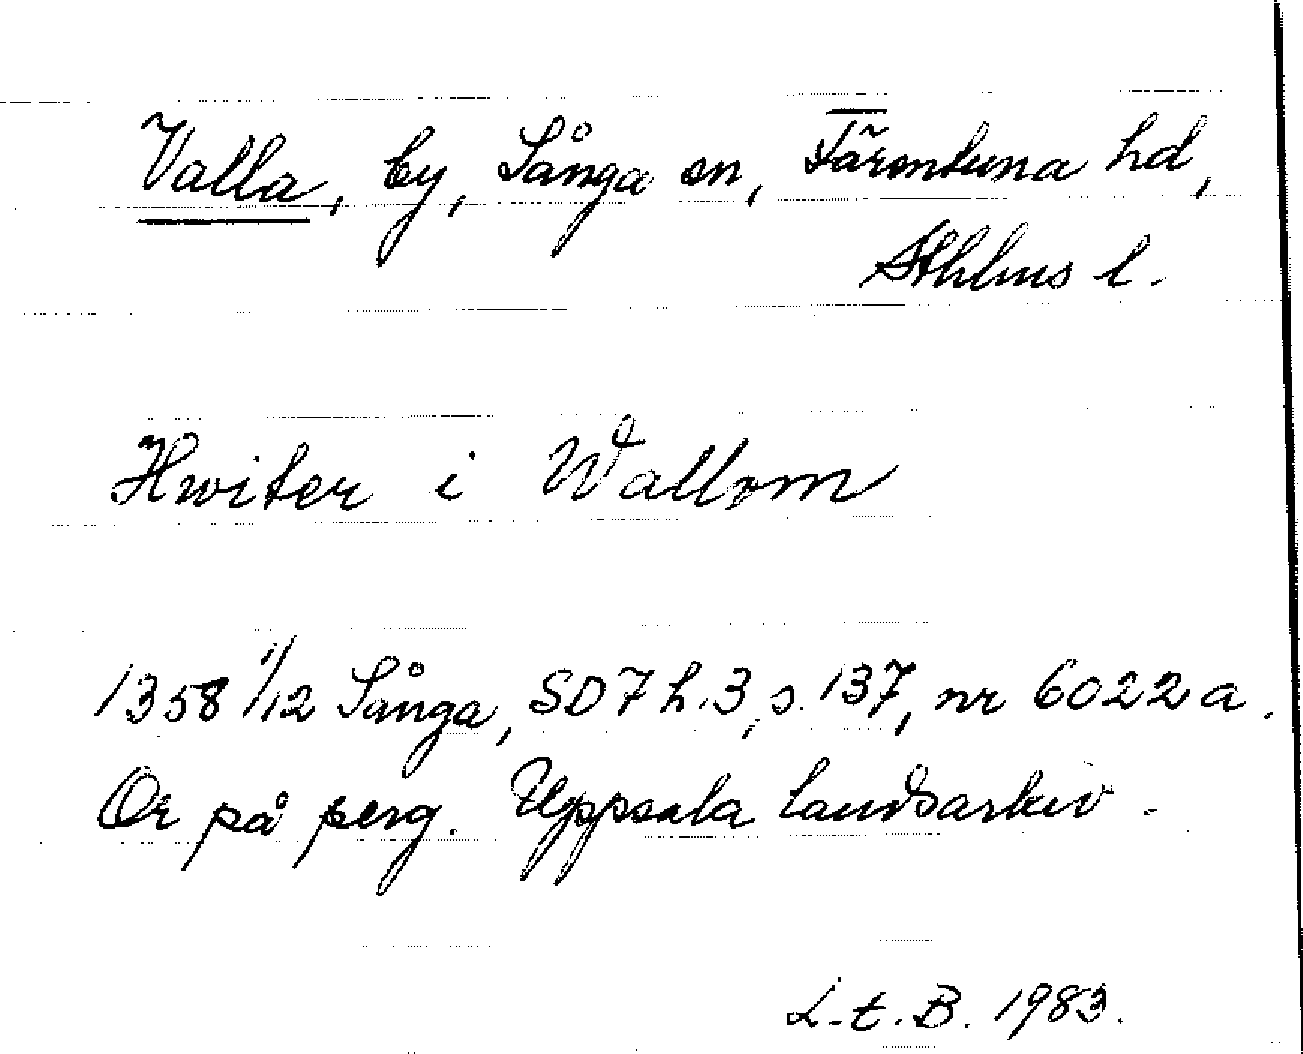 Valla, by, Sånga sn, Färentuna hd,
Sthlms l.
Hwiter i Wallom
1358 1/12 Sånga, SD 7 h. 3, s. 137, nr 6022 a.
Or på perg. Uppsala landsarkiv.
L.t.B. 1983.